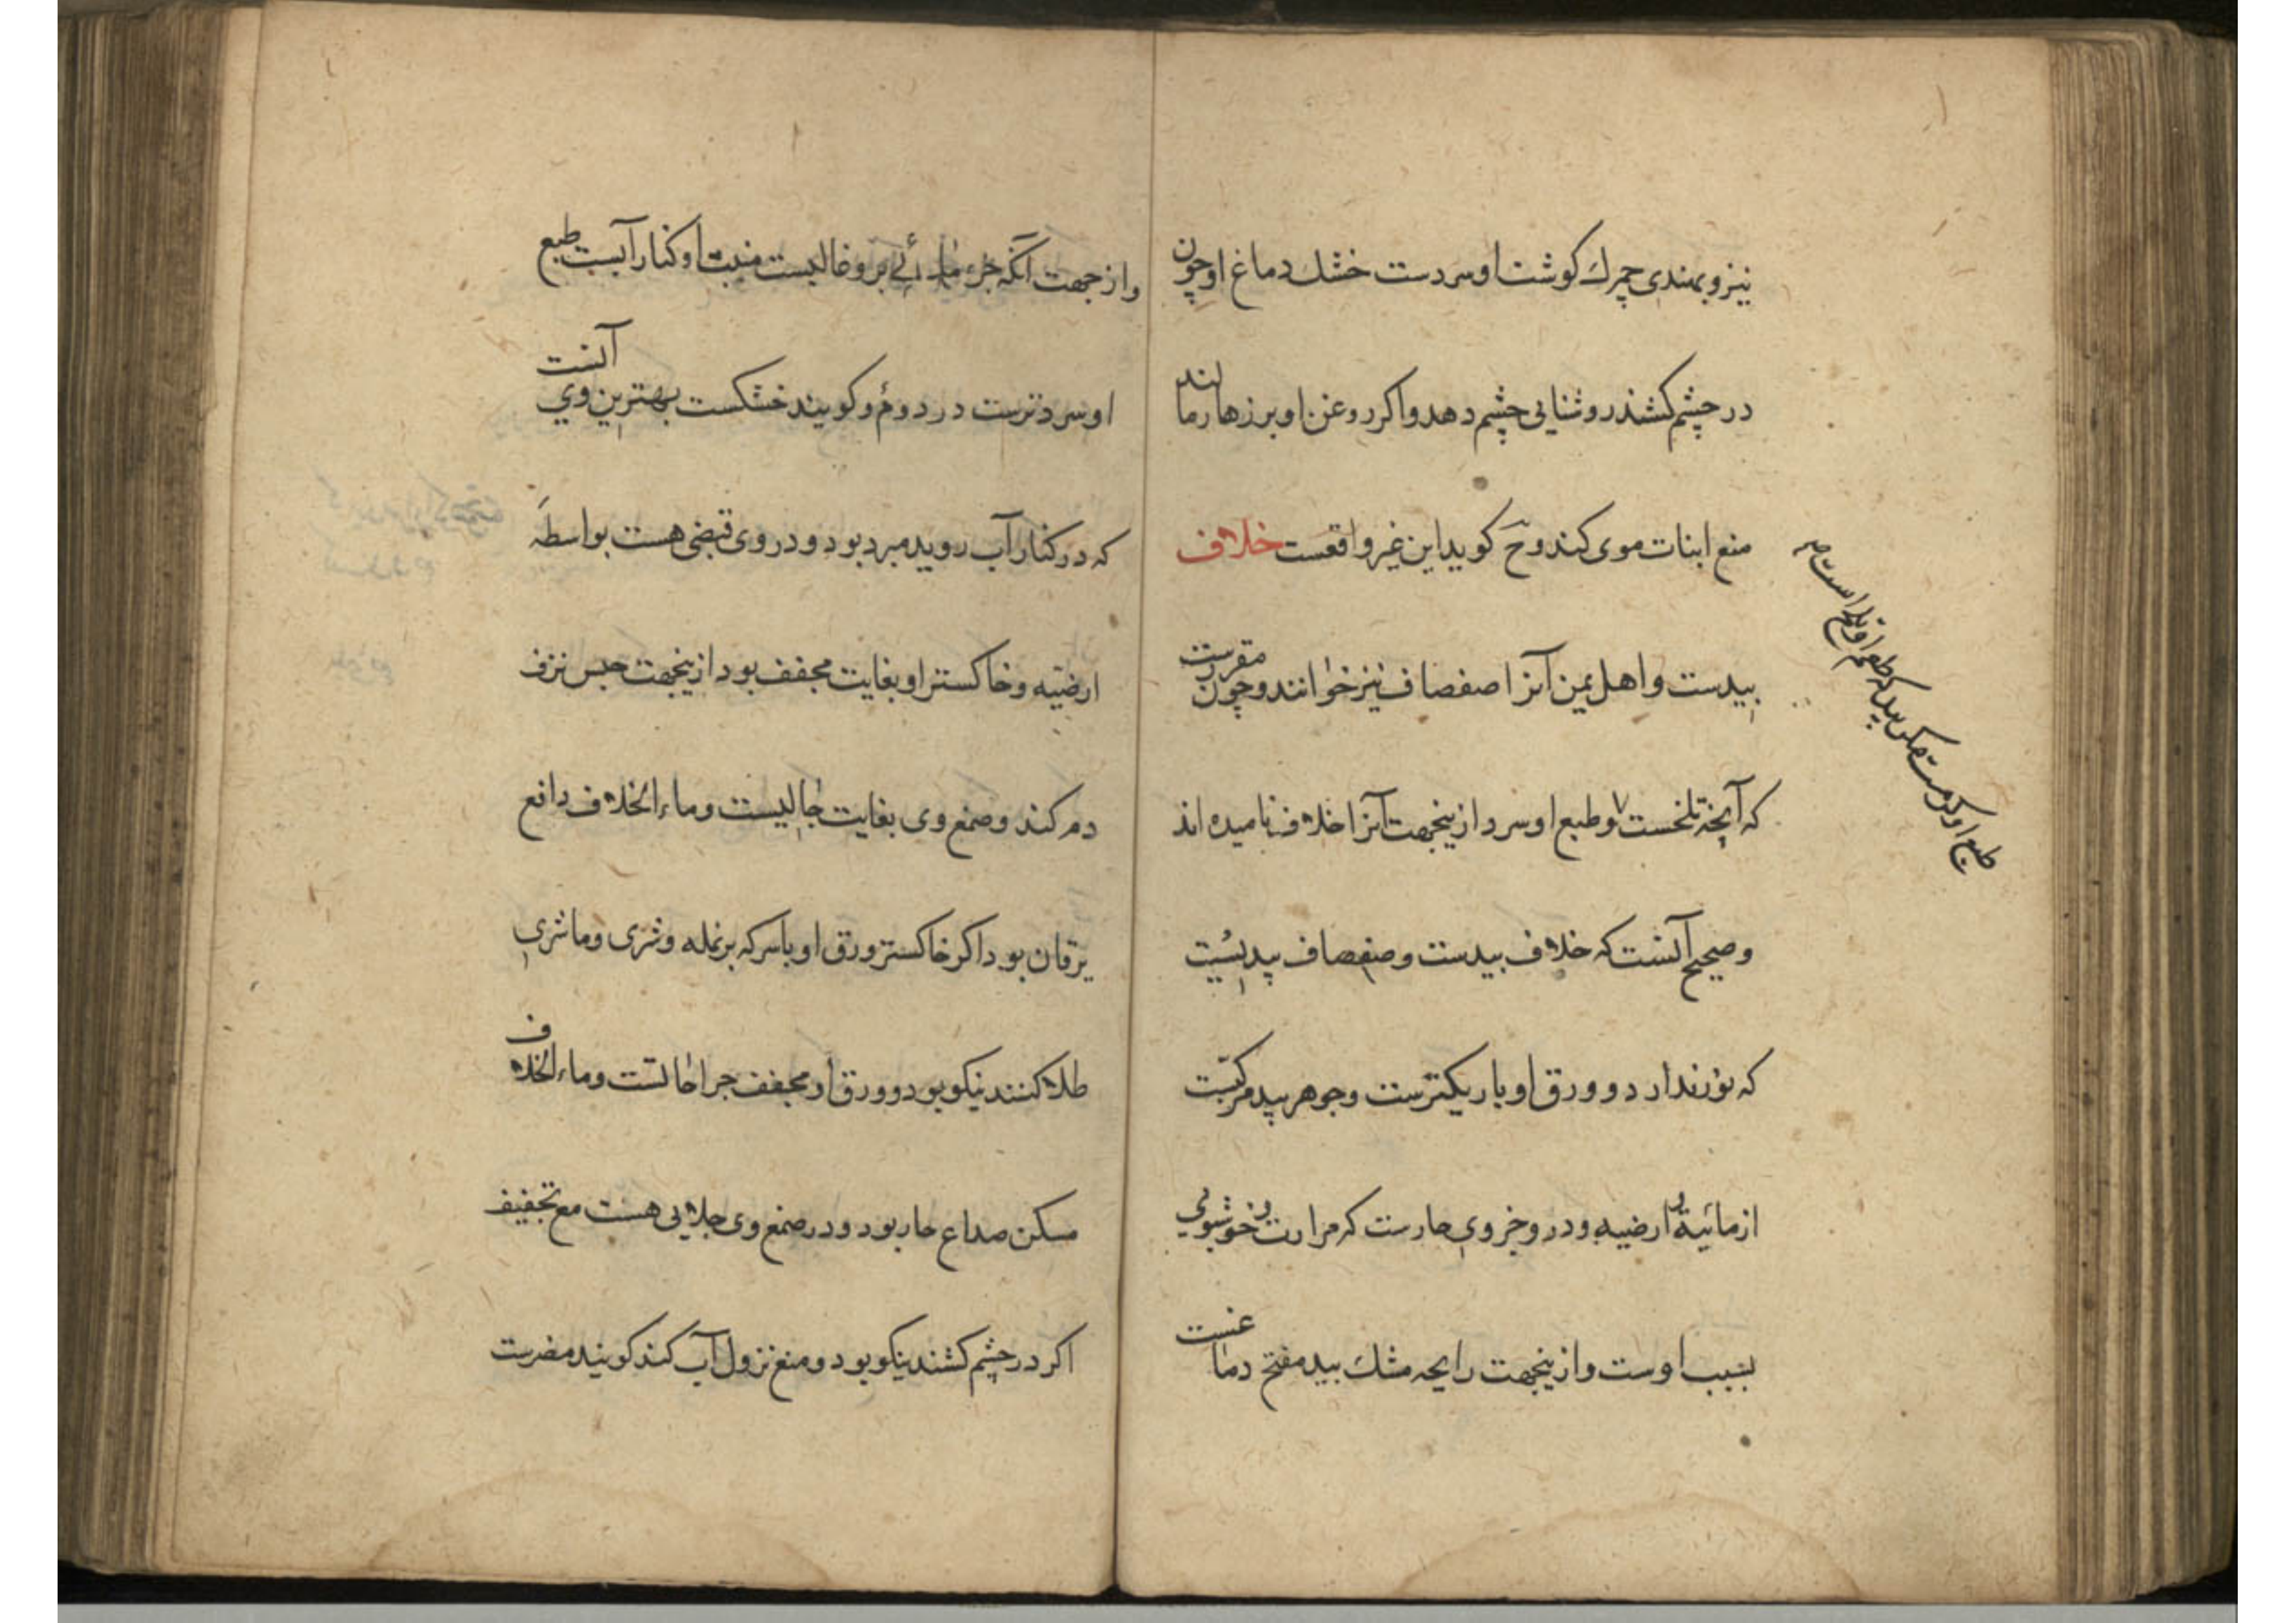 نیز و بهندی چمرك کوشت او سردست خشك دماغ او چون
در چشم کشند روشنایی چشم دهد و اکر روغن او بر زهار مالند
منع انبات موی کند و حَ کوید این غیر واقعست خلاف
بیدست و اهل یمن آنرا صفصاف نیز خوانند و چون مقررست
که آنچه تلخست و طبع او سرد ازینجهت آنرا خلاف نامیده اند
و صحیح آنست که خلاف بیدست و صفصاف بیدیست
که نور ندارد و ورق او باریکترست و جوهر بید مرکبّست
از مائیة و ارضیه و در و جزوی حارست که مرارت و خوشبویی
بسبب اوست و ازینجهت رایحه مشك بید مفتح دماغست
طبع او کرمست مکر بید که طعم او تلخ است
و از جهت آنکه جزء مائی برو غالبست منبت او کنار آبست طبع
او سردترست در دوم و کویند خشکست بهترین وی آنست
که در کنار آب روید مبرد بود و در وی قبضی هست بواسطهٔ
ارضیّه و خاکستر او بغایت مجفف بود ازینجهت حبس نزف
دم کند و صمغ وی بغایت جالیست و ماء الخلاف دافع
یرقان بود اکر خاکستر ورق او با سرکه بر نمله و شری و ماشری
طلا کنند نیکو بود و ورق او مجفف جراحاتست و ماء الخلاف
مسکن صداع حار بود و در صمغ وی جلایی هست مع تجفیف
اکر در چشم کشند نیکو بود و منع نزول آب کند کویند مضرست